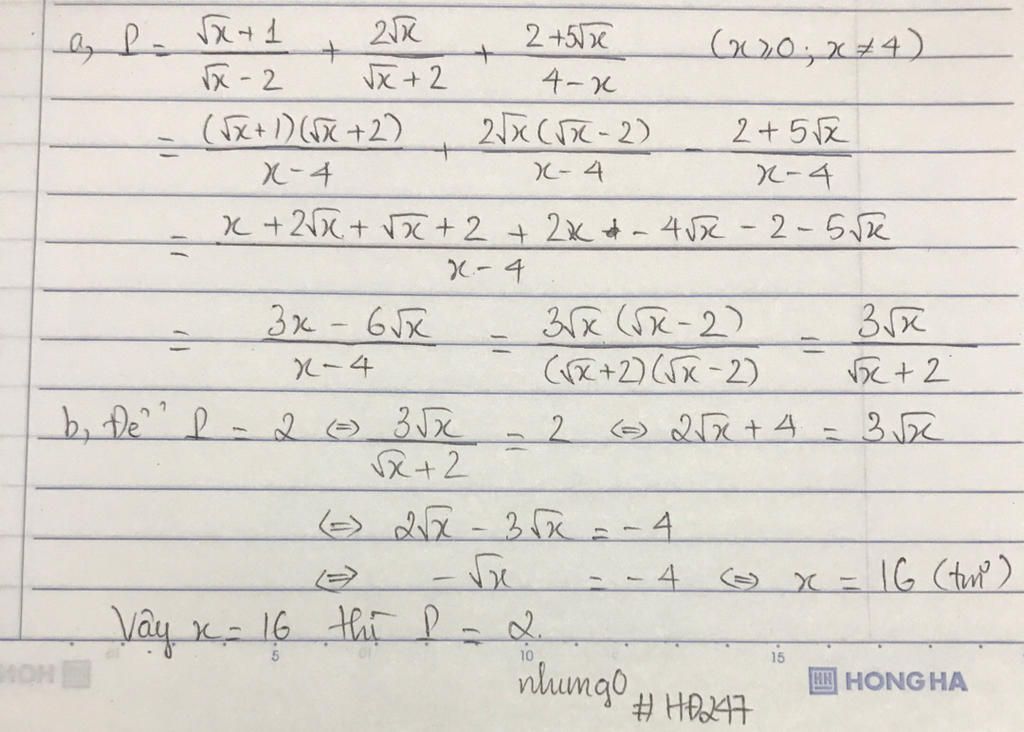 a, P = (√x + 1)/(√x - 2) + 2√x/(√x + 2) + (2 + 5√x)/(4 - x) (x ≥ 0; x ≠ 4)
= (√x + 1)(√x + 2)/(x - 4) + 2√x(√x - 2)/(x - 4) - (2 + 5√x)/(x - 4)
= (x + 2√x + √x + 2 + 2x - 4√x - 2 - 5√x)/(x - 4)
= (3x - 6√x)/(x - 4) = 3√x(√x - 2)/((√x + 2)(√x - 2)) = 3√x/(√x + 2)
b, Để P = 2 ⇔ 3√x/(√x + 2) = 2 ⇔ 2√x + 4 = 3√x
⇔ 2√x - 3√x = -4
⇔ -√x = -4 ⇔ x = 16 (tm)
Vậy x = 16 thì P = 2.
5 10 15
nhung0 # HĐ247
HH HONG HA